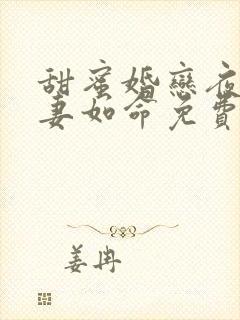 甜蜜婚戀夜
妻如命免費
姜冉